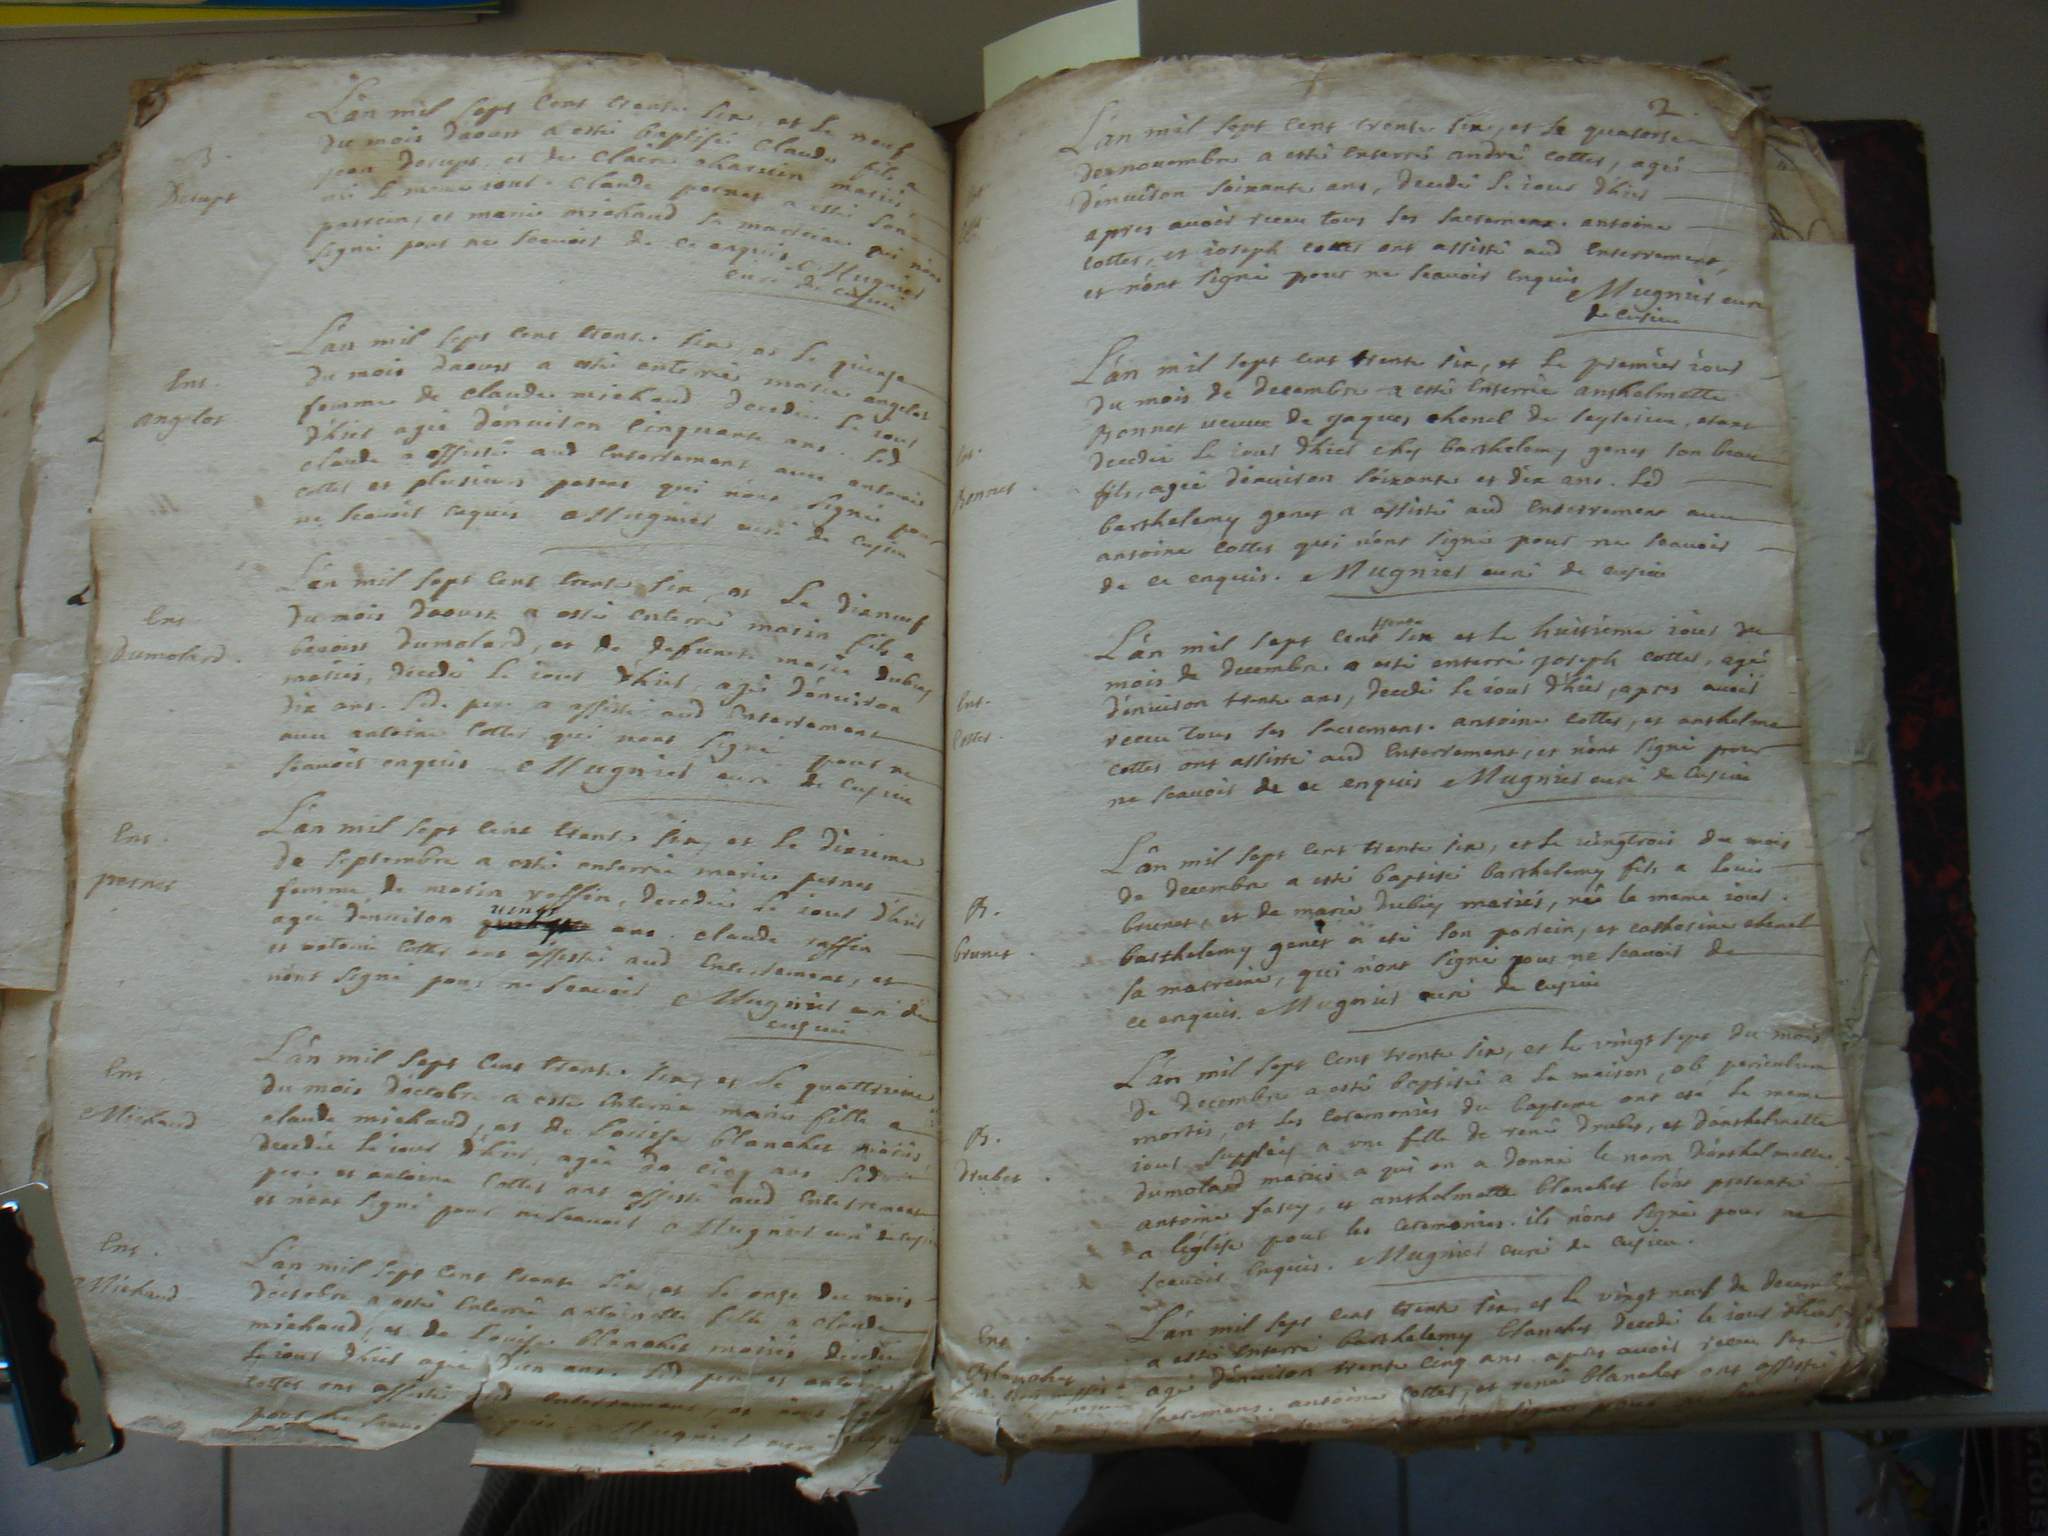 B.
Decrept
L'an mil sept cent trente six, et le neuf
du mois daoust a esté baptisé claude fils a
jean et de claire mariés,
né le meme iour. claude pernet a esté son
parrein, et marie michaud sa marreine qui n'ont
signé pour ne scavoir de ce enquis. Mugnier
curé de cusieu
Ent.
angelot
L'an mil sept cent trente six et le quinze
du mois daoust a esté enterrée marie angelot
femme de claude michaud decedée le iour
d'hier agée d'environ cinquante ans. led
claude a assisté aud enterrement avec antoine
cottet et plusieurs autres qui n'ont signé pour
ne scavoir enquis Mugnier curé de cusieu
Ent
dumolard.
L'an mil sept cent trente six, et le dixneuf
du mois daoust a esté enterré marin fils a
benoist dumolard, et de defuncte marie drubey
mariés, decedé le iour d'hier, agé d'environ
dix ans. led. pere a assisté aud enterrement
avec antoine cottet qui n'ont signé pour ne
scavoir enquis Mugnier curé de cusieu
Ent.
pernet
L'an mil sept cent trente six, et le dixieme
de septembre a esté enterrée marie pernet
femme de marin roffin, decedée le iour d'hier
agée d'environ vingt ans. claude roffin
et antoine cottet ont assisté aud enterrement, et
n'ont signé pour ne scavoir Mugnier curé de
cusieu
Ent.
Michaud
L'an mil sept cent trente six, et le quattrieme
du mois d'octobre a esté enterrée marie fille a
claude michaud, et de louise blanchet mariés,
decedée le iour d'hier, agée de cinq ans led
pere et antoine cottet ont assisté aud enterrement
et n'ont signé pour ne scavoir Mugnier curé de cusieu
Ent.
Michaud
L'an mil sept cent trente six, et le onze du mois
d'octobre a esté enterrée antoinette fille a claude
michaud, et de louise blanchet mariés decedée
le iour d'hier agée d'un an. led pere et antoine
cottet ont assisté aud enterrement, et n'ont signé
pour ne scavoir enquis Mugnier curé de cusieu
2.
L'an mil sept cent trente six, et le quatorse
de novembre a esté enterré andré cottet, agé
d'environ soixante ans, decedé le iour d'hier
apres avoir receu tous ses sacremens. antoine
cottet, et ioseph cottet ont assisté aud enterrement,
et n'ont signé pour ne scavoir enquis Mugnier curé
de cusieu
Ent.
Bonnet
L'an mil sept cent trente six, et le premier iour
du mois de decembre a esté enterrée anthelmette
Bonnet veuve de jaques chenel de seyssieu, etant
decedée le iour d'hier chez barthelemy genet son beau
fils, agée d'environ soixante et dix ans. led
barthelemy genet a assisté aud enterrement avec
antoine cottet qui n'ont signé pour ne scavoir
de ce enquis. Mugnier curé de cusieu
Ent.
Cottet.
L'an mil sept cent trente six et le huitieme iour du
mois de decembre a esté enterré joseph cottet, agé
d'environ trente ans, decedé le iour d'hier, apres avoir
receu tous ses sacremens. antoine cottet, et anthelme
cottet ont assisté aud enterrement, et n'ont signé pour
ne scavoir de ce enquis Mugnier curé de cusieu
B.
brunet
L'an mil sept cent trente six, et le vingtrois du mois
de decembre a esté baptisé barthelemy fils a louis
brunet, et de marie drubey mariés, né le meme iour.
barthelemy genet a esté son parrein, et catherine chenel
sa marreine, qui n'ont signé pour ne scavoir de
ce enquis. Mugnier curé de cusieu
B.
drubet
L'an mil sept cent trente six, et le vingt sept du mois
de decembre a esté baptisée a la maison, ob periculum
mortis, et les ceremonies du bapteme ont esté le meme
iour suppléés a une fille de rené drubet, et d'anthelmette
dumolard mariés a qui on a donné le nom d'anthelmette.
antoine et anthelmette blanchet l'ont presenté
a l'eglise pour les ceremonies. ils n'ont signé pour ne
scavoir enquis. Mugnier curé de cusieu.
Ent.
Blanchet
L'an mil sept cent trente six, et le vingt neuf de decembre
a esté enterré barthelemy blanchet decedé le iour d'hier,
agé d'environ trente cinq ans. apres avoir receu ses
sacremens. antoine cottet, et rené blanchet ont assisté